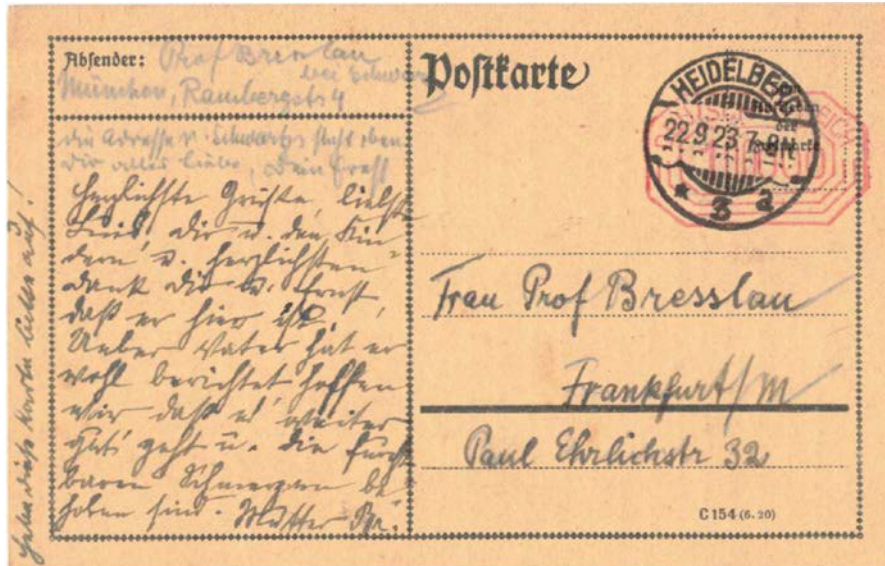 Absender: Prof Bresslau
bei Schwartz
München, Rambergstr 4
die Adresse v. Schwartz steht oben
Dir alles Liebe, Dein Ernst
Herzlichste Grüße, liebste
Luis, Dir u. den Kin-
dern u. herzlichsten
Dank Dir u. Ernst,
daß er hier ist.
Ueber Vater hat er
wohl berichtet hoffen
wir daß es weiter
gut geht u. die furcht
baren Schmerzen be-
hoben sind. Mutter Br.
Hebe diese Karte bitte auf!
Postkarte
HEIDELBERG
22.9.23 7-8N
* 3 a
Frau Prof Bresslau
Frankfurt/M
Paul Ehrlichstr 32
C 154 (6. 20)